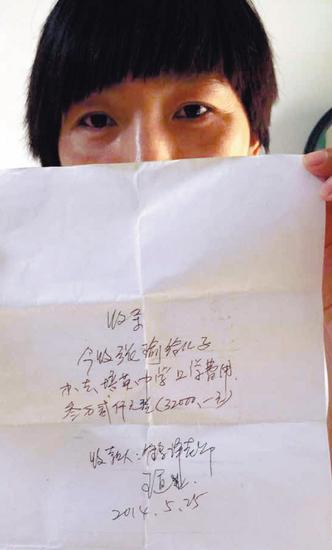 收条
今收张瑜给儿子
去培英中学上学费用
叁万贰仟元整(32000.-元)
收款人:
2014.5.25